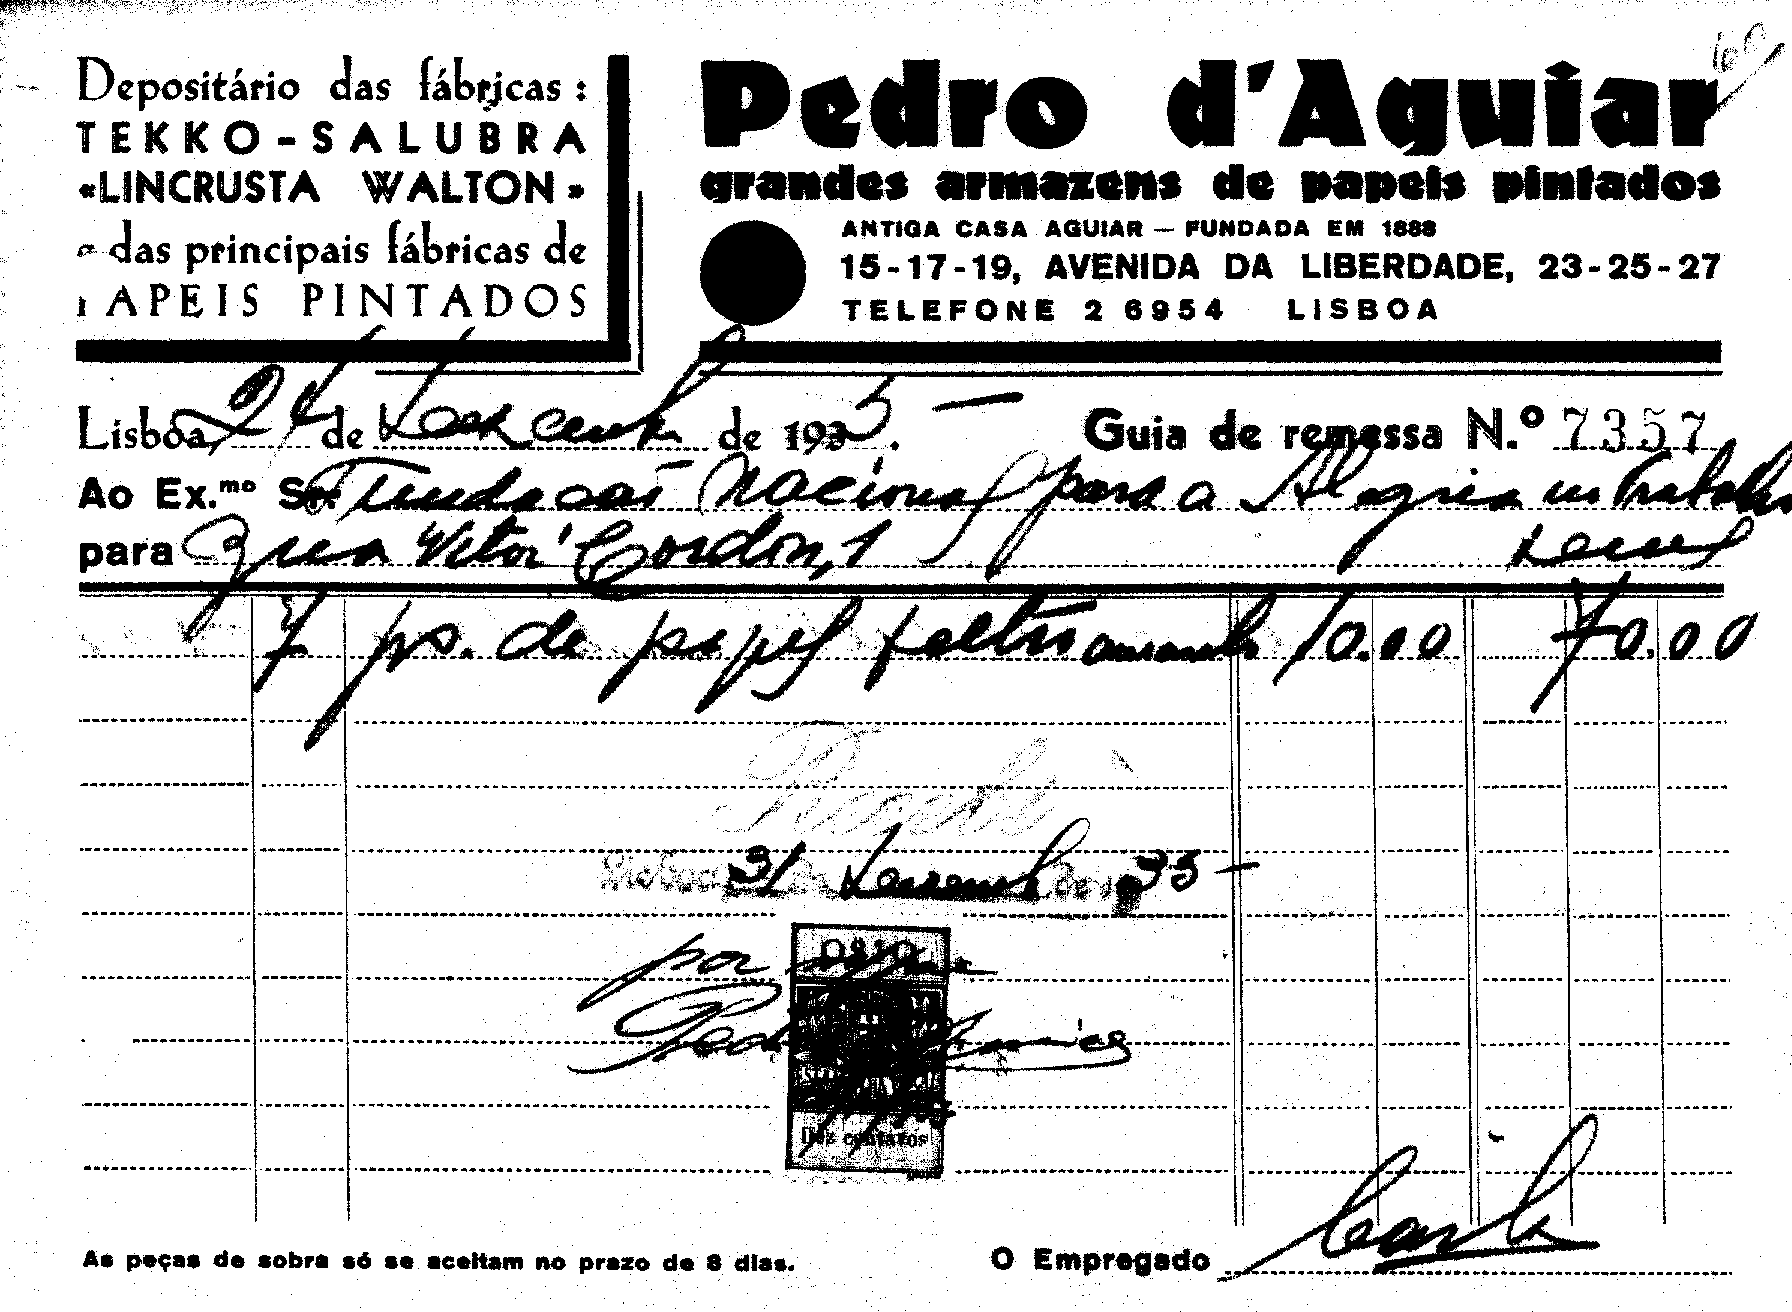 Depositário das fábricas:
TEKKO-SALUBRA
«LINCRUSTA WALTON»
e das principais fábricas de
PAPEIS PINTADOS
Pedro d'Aguiar
grandes armazens de papeis pintados
ANTIGA CASA AGUIAR — FUNDADA EM 1888
15-17-19, AVENIDA DA LIBERDADE, 23-25-27
TELEFONE 2 6954 LISBOA
Lisboa, 24 de Dezembro de 1935.
Guia de remessa N.º 7357
Ao Ex.mo Sr. Fundacão Nacional para a Alegria no Trabalho
para Rua Vitor Cordon, 1
7 ps. de papel feltro amarelo 10.00 70.00
Recebi
Lisboa 31 Dezembro de 1935
por
Pedro
Dez centavos
As peças de sobra só se aceitam no prazo de 8 dias.
O Empregado